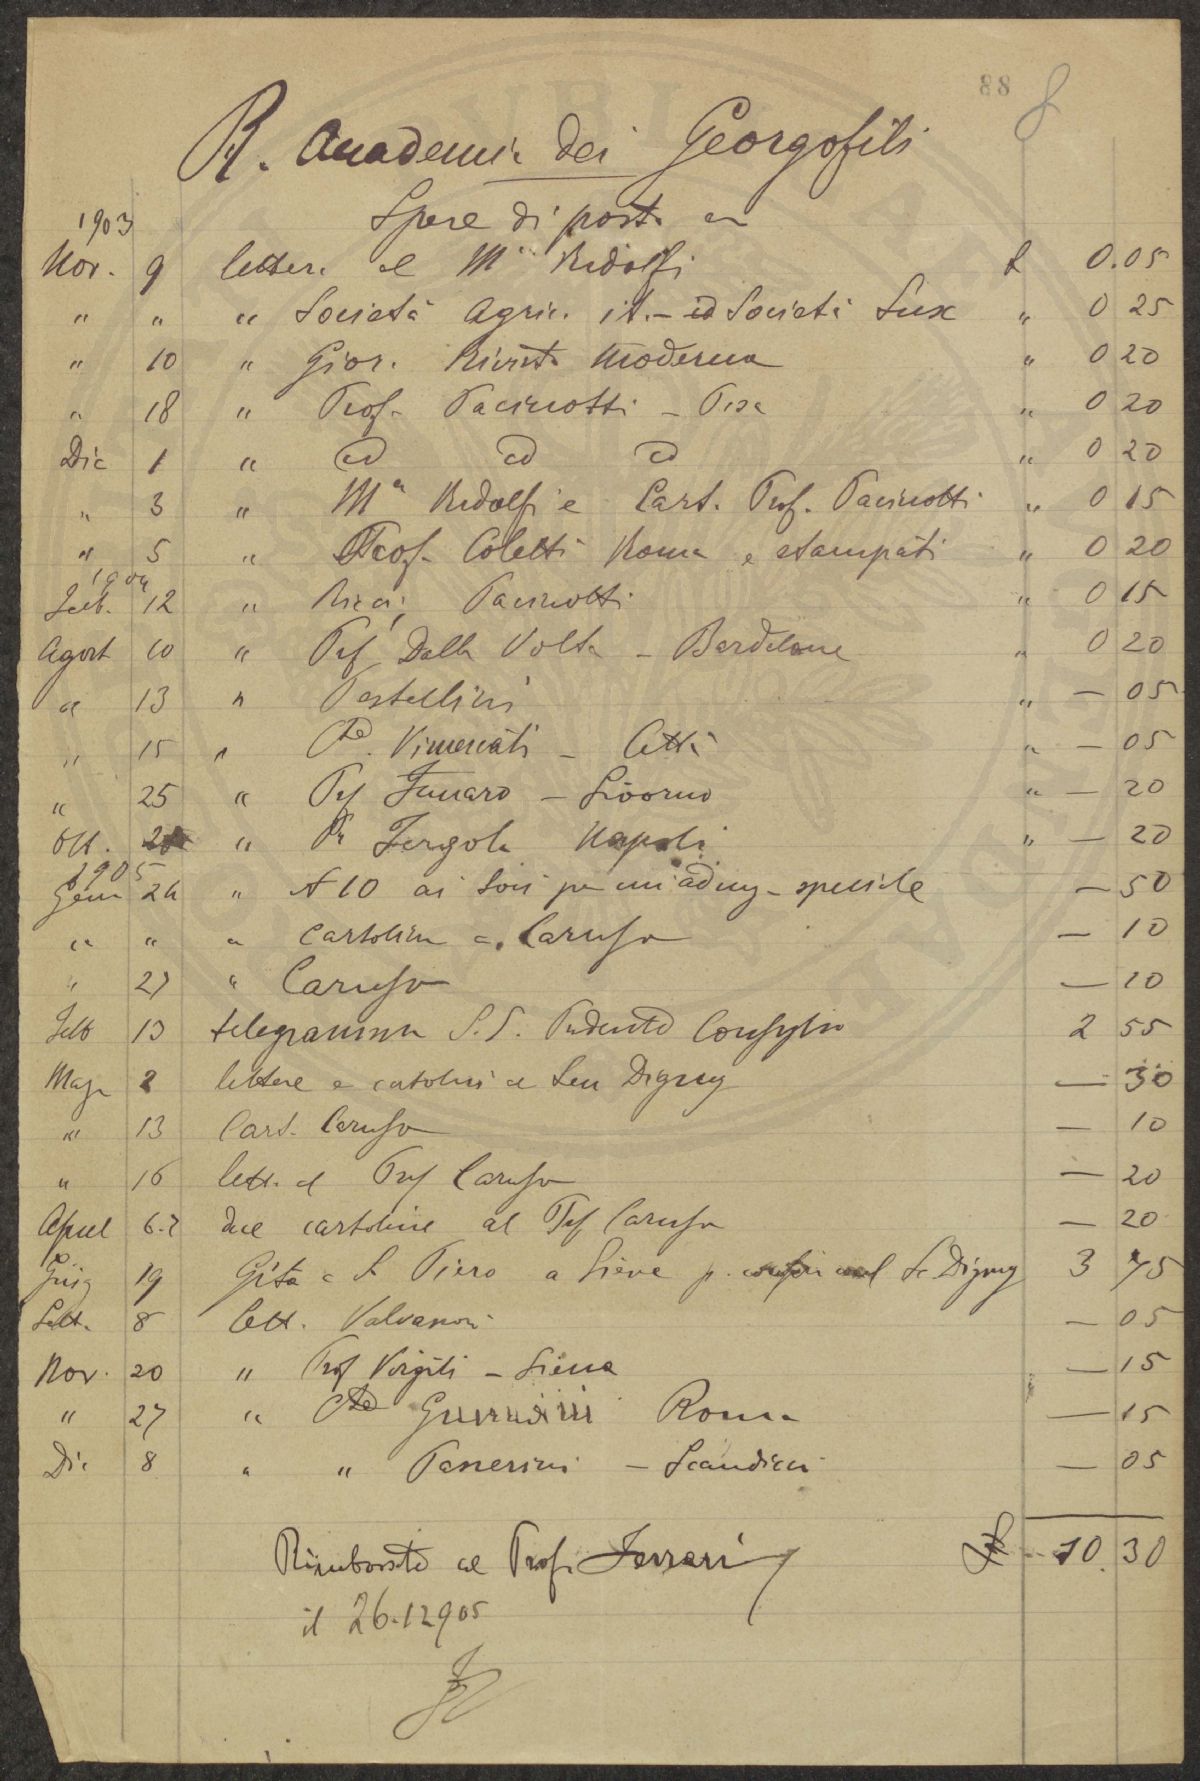 88 8
R. Accademia dei Georgofili
Spese di posta
1903
Nov. 9 lettera al M Ridolfi £ 0.05
" " " Società Agric. it. – ed Società Lux " 0 25
" 10 " Gior. Rivista Moderna " 0 20
" 18 " Prof. Pacinotti – Pisa " 0 20
Dic 1 " id id id " 0 20
" 3 " M Ridolfi e Cart. Prof. Pacinotti " 0 15
" 5 " Prof. Coletti Roma e stampati " 0 20
1904
Febb. 12 " Ricci, Pacinotti " 0 15
Agost 10 " Prof Dalla Volta – " 0 20
" 13 " Pestellini " — 05
" 15 " Vimercati – Città " — 05
" 25 " Prof Funaro – Livorno " — 20
Ott. " Fergola Napoli " — 20
1905
Genn 24 " N 10 ai soci per un'adung. speciale — 50
" " " cartolina a Caruso — 10
" 27 " Caruso — 10
Febb 13 telegramma 2 55
Mag 2 lettere e cartolina a Sen Digny — 30
" 13 Cart. Caruso — 10
" 16 lett. al Prof Caruso — 20
April 6.7 due cartoline al Prof Caruso — 20
Giug 19 Gita a S. Piero a Sieve p. col Digny 3 75
Sett. 8 lett. — 05
Nov. 20 " Prof Virgili – Siena — 15
" 27 " Cte Guicciardini Roma — 15
Dic 8 " " Passerini – Scandicci — 05
Rimborsato al Prof. Ferrari £ 10.30
il 26.12 905